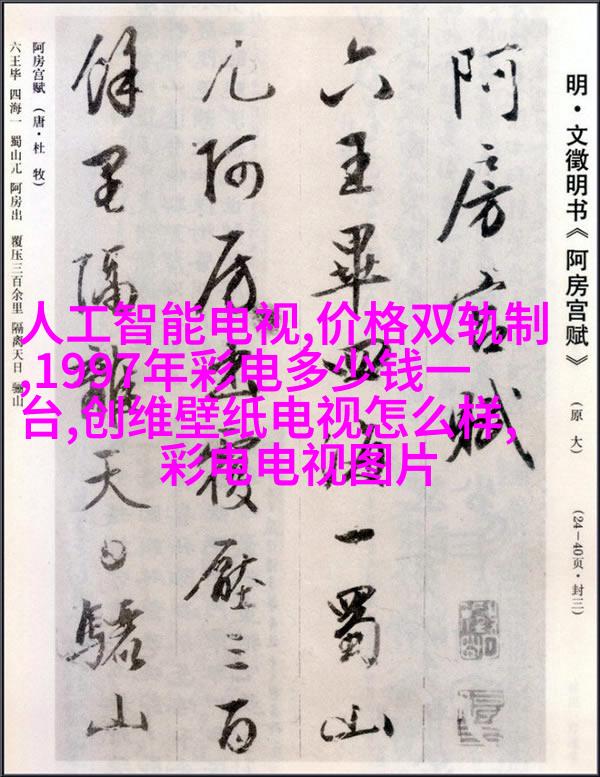 明·文徵明书《阿房宫赋》
(原大)
(24—40页·封三)
阿房宫赋
六王畢四海一蜀山
兀阿房出覆壓三百
餘里隔離天日驪山
阿房宫赋(唐·杜 牧)
六王毕 四海一 蜀山兀 阿房出 覆压三百余里 隔离天日 骊山
人工智能电视,价格双轨制
,1997年彩电多少钱一
台,创维壁纸电视怎么样,
彩电电视图片